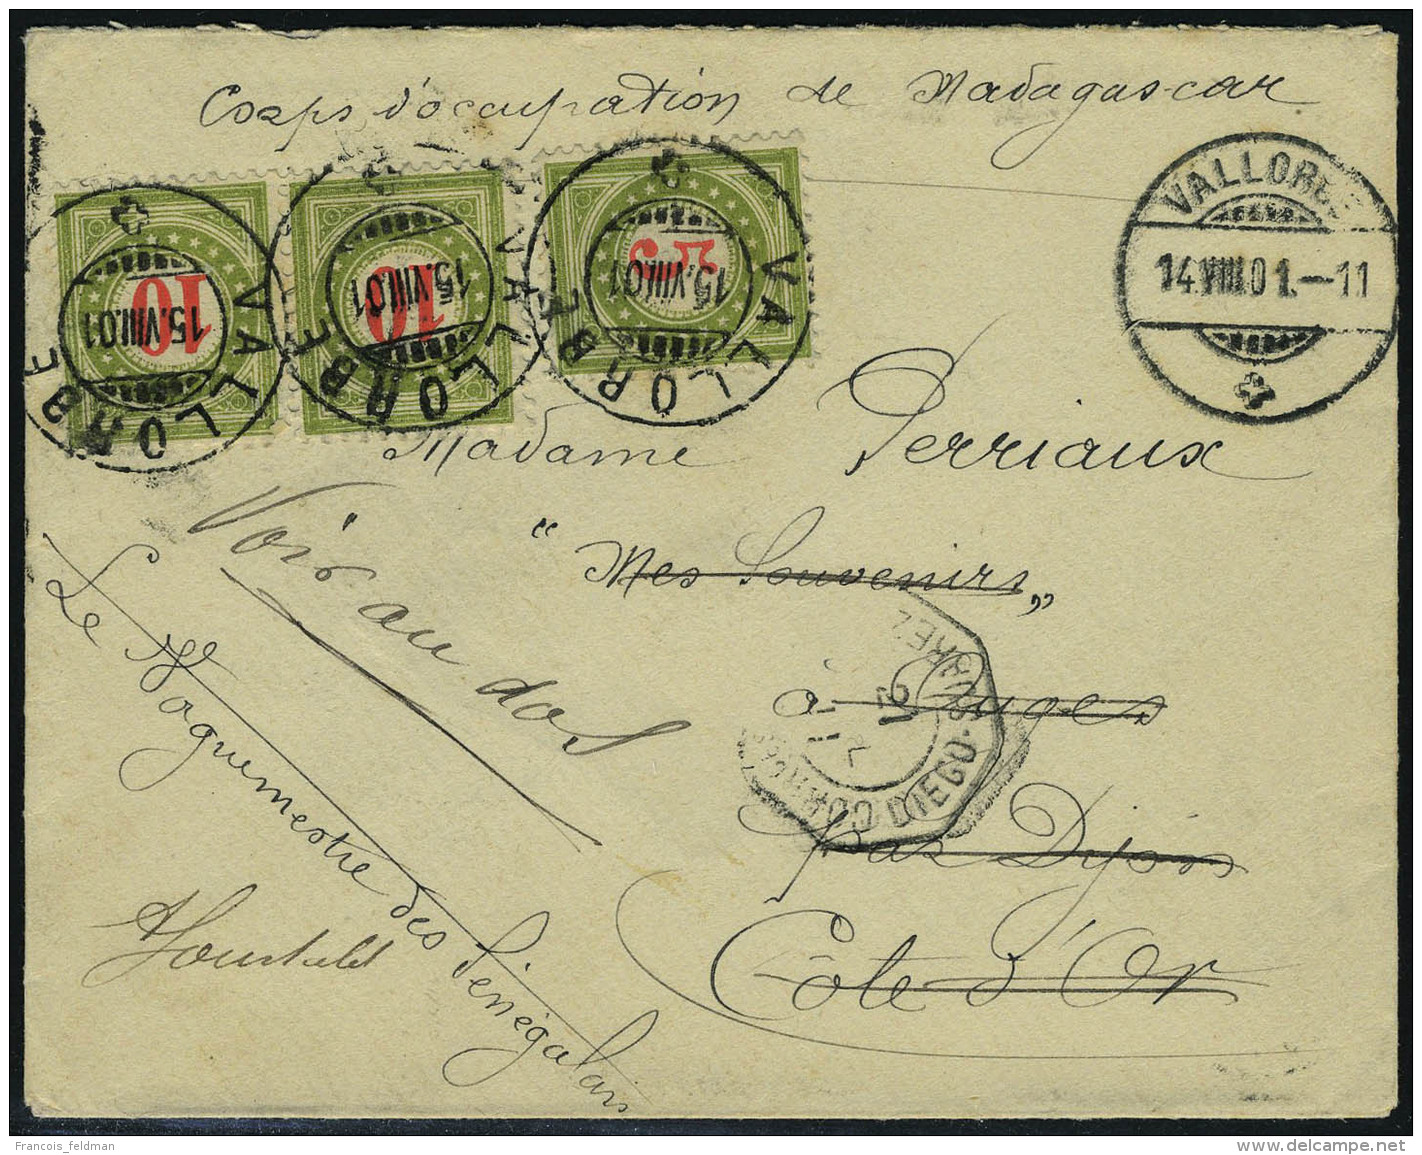 Corps d'occupation de Madagascar
VALLORBE
14.VIII.01.-11
10
VALLORBE
15.VIII.01
10
VALLORBE
15.VIII.01
5
VALLORBE
15.VIII.01
Madame Perriaux
"Mes Souvenirs"
à Luges
par Dijon
Côte d'Or
Voir au dos
Le Vaguemestre des Sénégalais
DIEGO-SUAREZ
Francois_feldman
delcampe.net